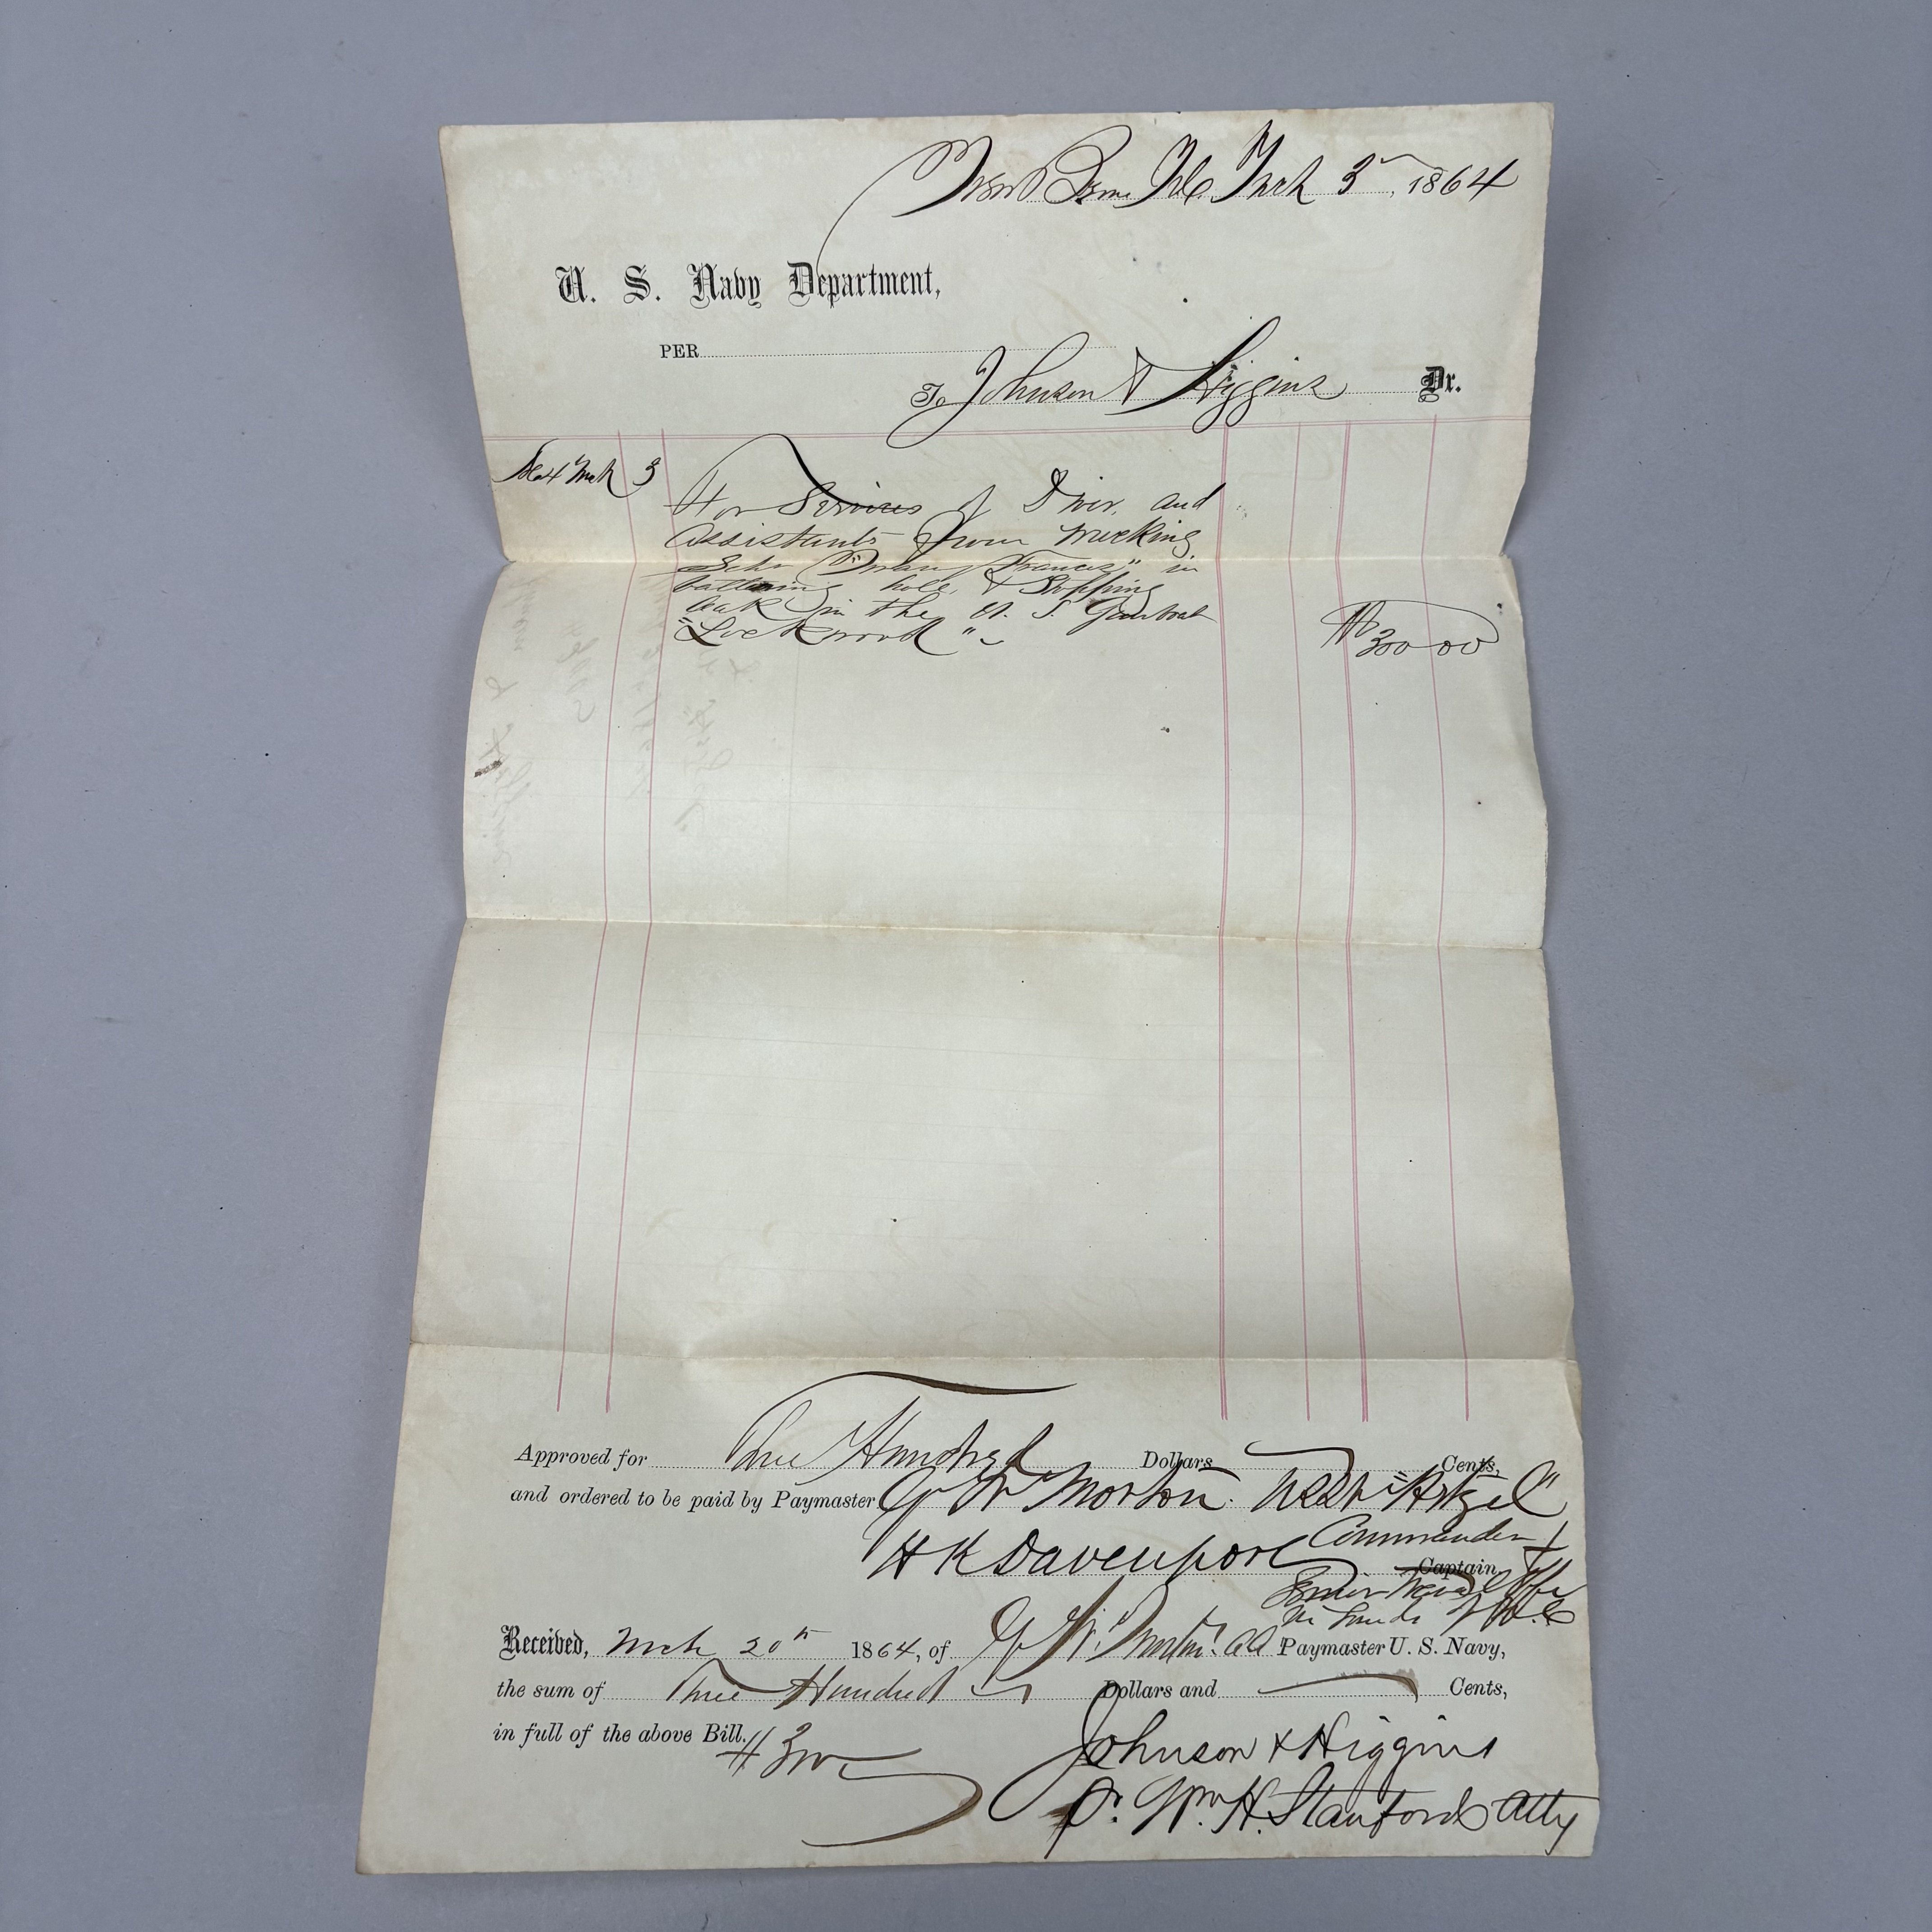 New Berne N.C. Mrch 3", 1864
U. S. Navy Department,
PER
To Johnson & Higgins Dr.
1864 Mch 3
For Services of Diver, and
Assistants from wrecking
Schr "Mary Francis" in
battening hole, & Stopping
leak in the U. S. Gunboat
"Lockwood" "
$300 00
Approved for Three Hundred Dollars Cents,
and ordered to be paid by Paymaster G W Morton USSr "Hetzel"
H K Davenport Commander &
Captain
Senior Naval Offr
in Sounds of N.C.
Received, Mch 20th 1864, of G. W. Morton. AA Paymaster U. S. Navy,
the sum of Three Hundred Dollars and Cents,
in full of the above Bill.
$300
Johnson & Higgins
Pr. Wm H. Stanford Atty